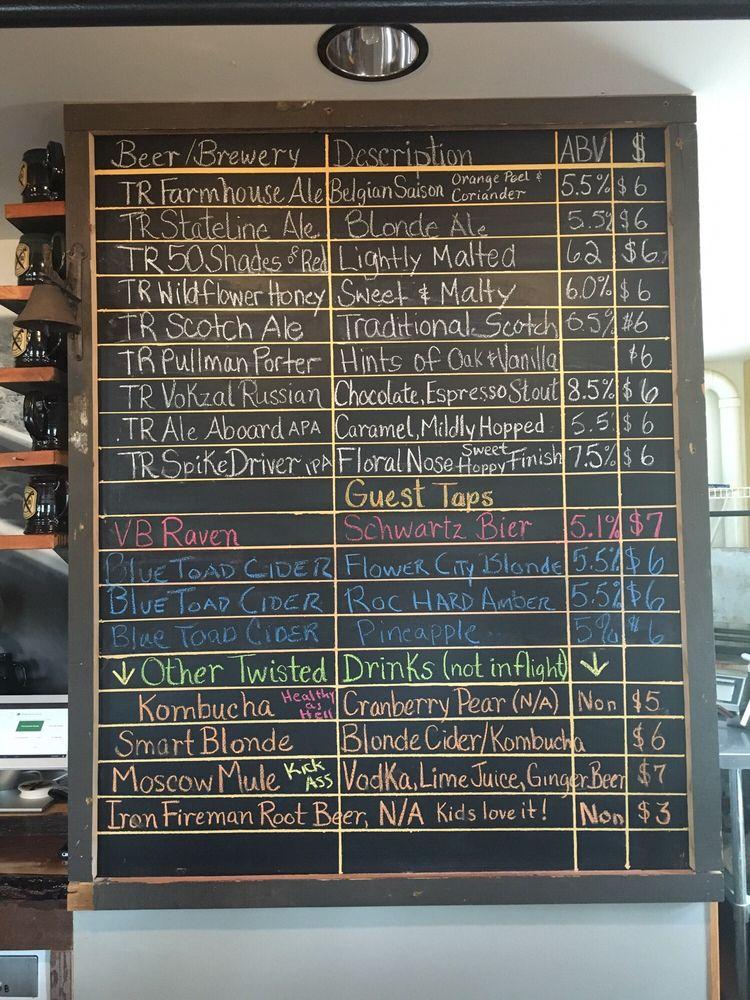 Beer/Brewery Description ABV $
TR Farmhouse Ale Belgian Saison Orange Peel & Coriander 5.5% $6
TR Stateline Ale Blonde Ale 5.5% $6
TR 50 Shades of Red Lightly Malted 62 $6
TR Wildflower Honey Sweet & Malty 6.0% $6
TR Scotch Ale Traditional Scotch 6.5% $6
TR Pullman Porter Hints of Oak & Vanilla $6
TR VoKzal Russian Chocolate, Espresso Stout 8.5% $6
TR Ale Aboard APA Caramel, Mildly Hopped 5.5 $6
TR SpikeDriver IPA Floral Nose Sweet Hoppy Finish 7.5% $6
Guest Taps
VB Raven Schwartz Bier 5.1% $7
Blue Toad Cider Flower City Blonde 5.5% $6
Blue Toad Cider Roc Hard Amber 5.5% $6
Blue Toad Cider Pineapple 5% $6
↓ Other Twisted Drinks (not in flight) ↓
Kombucha Healthy as Hell Cranberry Pear (N/A) Non $5
Smart Blonde Blonde Cider/Kombucha $6
Moscow Mule Kick Ass Vodka, Lime Juice, Ginger Beer $7
Iron Fireman Root Beer, N/A Kids love it! Non $3